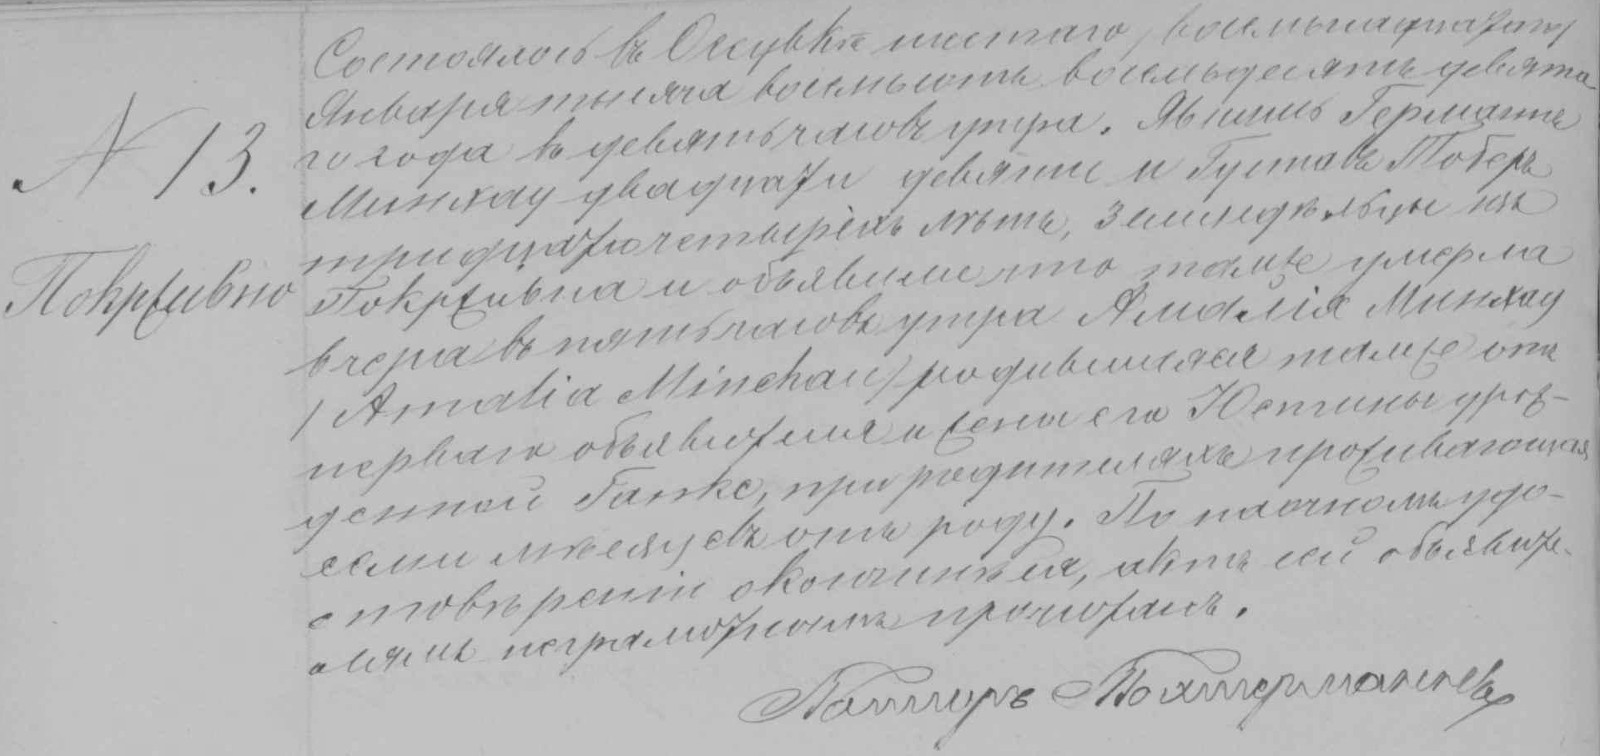 N 13.
Покрживно
Состоялось въ Осувкѣ шестаго / восьмнадцатаго /
Января тысяча восемьсотъ восемьдесятъ девята-
го года въ девять часовъ утра. Явились Германъ
Минхау двадцати девяти и Густавъ Тоберъ
тридцати четырехъ лѣтъ, земледѣльцы изъ
Покрживна и объявили что тамже умерла
вчера въ пять часовъ утра Амалія Минхау
/ Amalia Minchau / родившаяся тамже отъ
перваго объявителя и жены его Юстины урож-
денной Ганке, при родителяхъ проживающая
семи мѣсяцевъ отъ роду. По наочномъ удо-
стовѣреніи о кончинѣ ея, актъ сей объявите-
лямъ неграмотнымъ прочитанъ.
Пасторъ